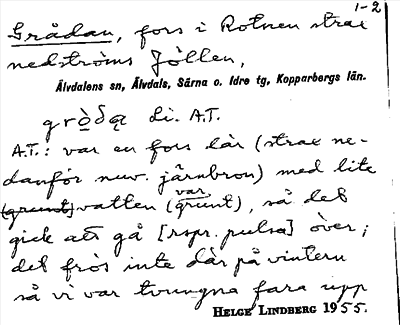 1-2
Grådan, fors i Rotnen strax
nedströms Jöllen,
Älvdalens sn, Älvdals, Särna o. Idre tg, Kopparbergs län.
di. A.T.
A.T.: var en fors där (strax ne-
danför nuv. järnbron) med lite
(grunt) vatten (var grunt), så det
gick att gå [rspr. pulsa] över;
det frös inte där på vintern
så vi var tvungna fara upp
HELGE LINDBERG 1955.